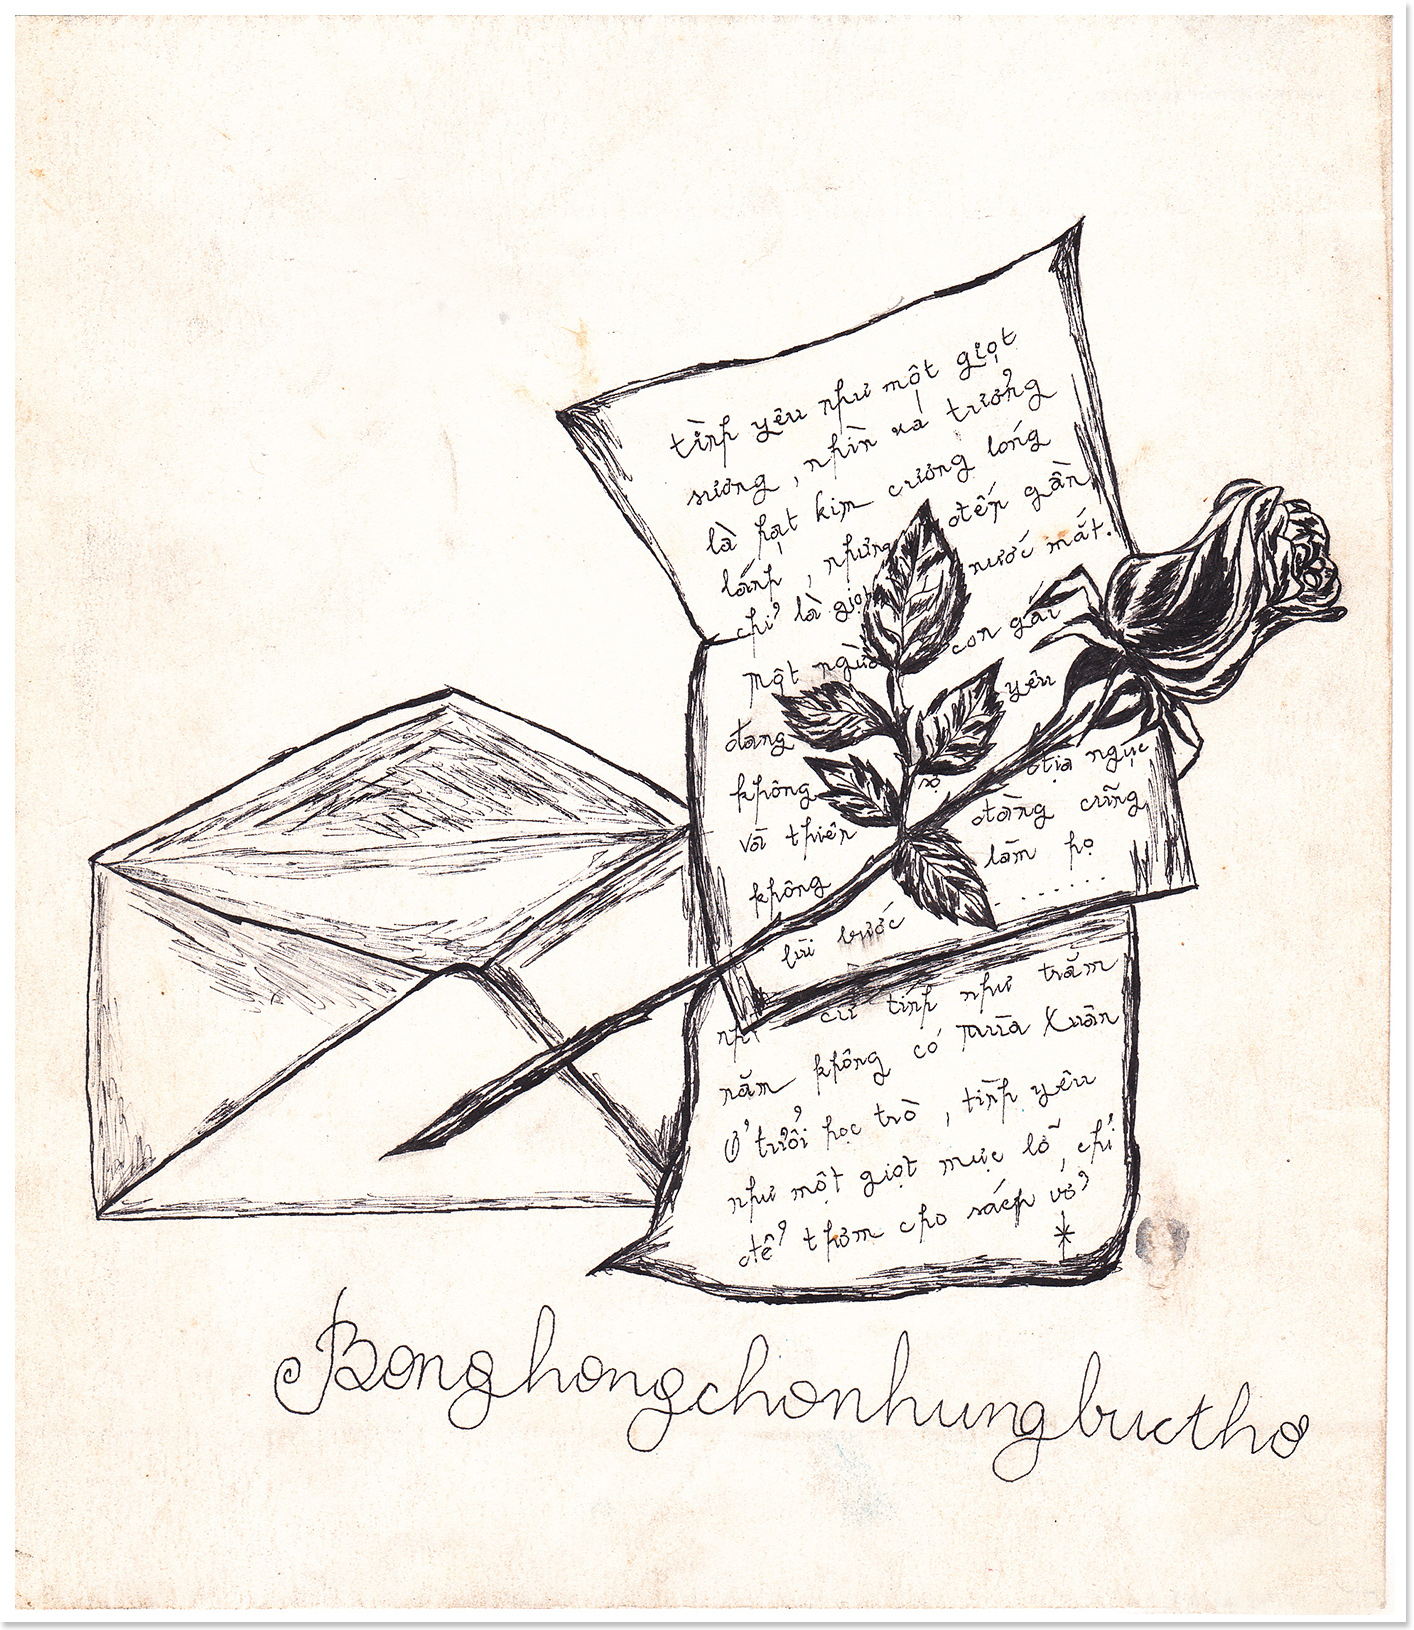 tình yêu như một giọt
sương, nhìn xa tưởng
là hạt kim cương lóng
lánh, nhưng đến gần
chỉ là giọt nước mắt.
Một người con gái
đang yêu
không sợ địa ngục
và thiên đàng cũng
không làm họ
lùi bước .....
như trăm
năm không có Mùa Xuân
Ở tuổi học trò, tình yêu
như một giọt mực lỡ, chỉ
để thơm cho sách vở
Bonghongchonhungbucthơ